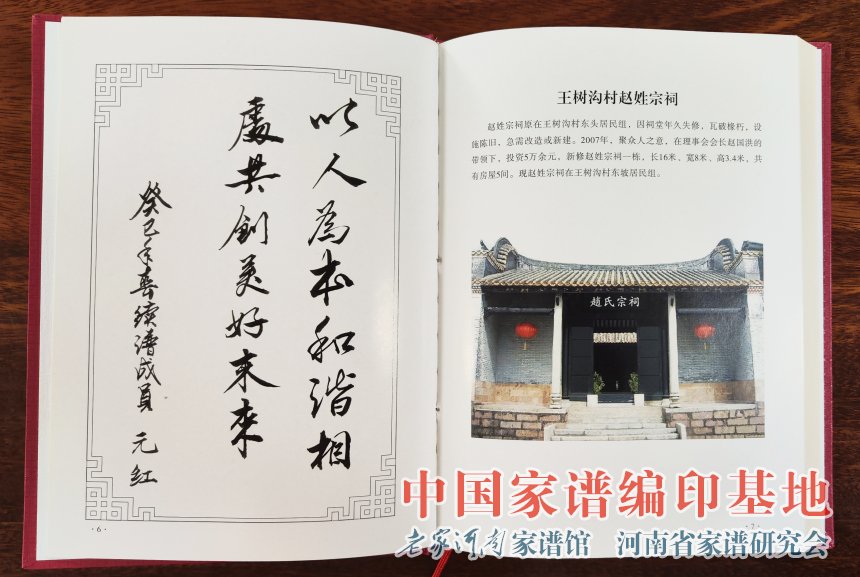 以人為本和谐相
處共創美好未來
癸巳年春续谱成员 元红
·6·
王树沟村赵姓宗祠
赵姓宗祠原在王树沟村东头居民组,因祠堂年久失修,瓦破椽朽,设
施陈旧,急需改造或新建。2007年,聚众人之意,在理事会会长赵国洪的
带领下,投资5万余元,新修赵姓宗祠一栋,长16米、宽8米、高3.4米,共
有房屋5间。现赵姓宗祠在王树沟村东坡居民组。
趙氏宗祠
·7·
中国家谱编印基地
老家河南家谱馆 河南省家谱研究会